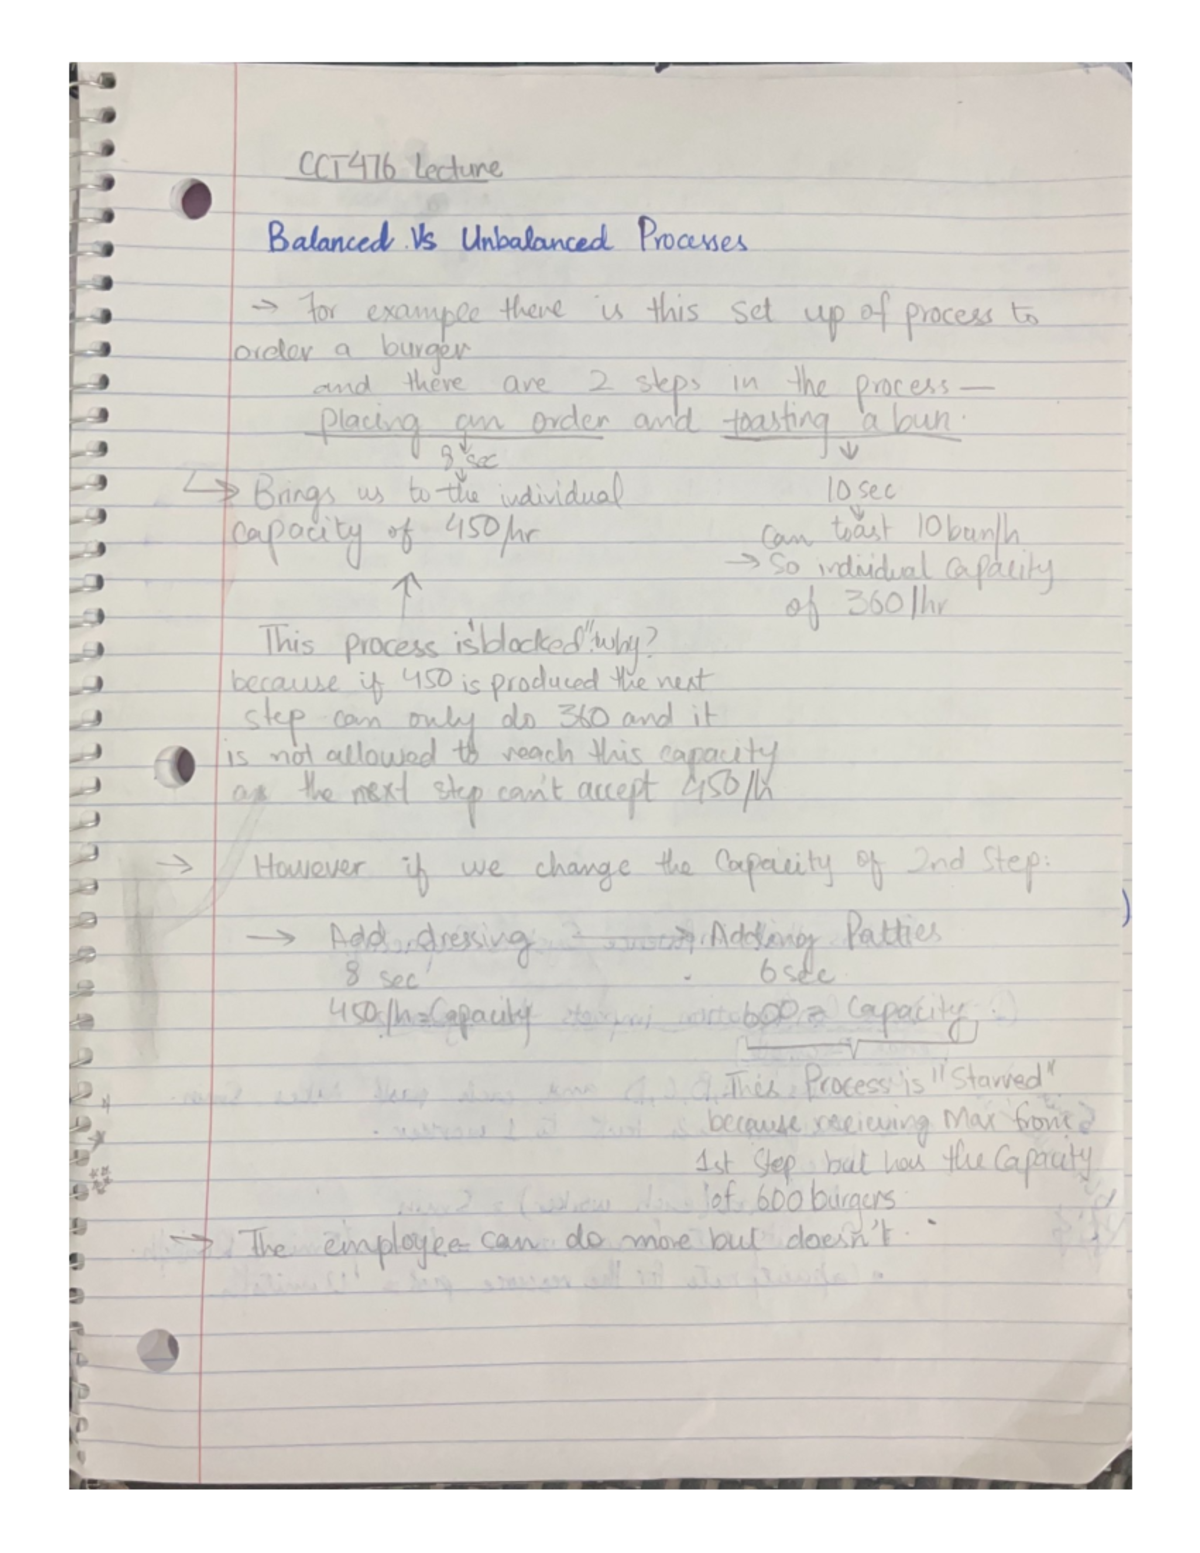 CCT476 Lecture
Balanced Vs Unbalanced Processes
→ For example there is this set up of process to
order a burger
and there are 2 steps in the process —
placing an order and toasting a bun.
8 sec
↳ Brings us to the individual
capacity of 450/hr
10 sec
can toast 10 bun/h
→ So individual capacity
of 360/hr
This process is "blocked" why?
because if 450 is produced the next
step can only do 360 and it
is not allowed to reach this capacity
as the next step can't accept 450/h
→ However if we change the Capacity of 2nd Step:
→ Add dressing → Adding Patties
8 sec 6 sec
450/h = Capacity 600 = Capacity
This Process is "Starved"
because recieving Max from
1st Step but has the Capacity
of 600 burgers
→ The employee can do more but doesn't.